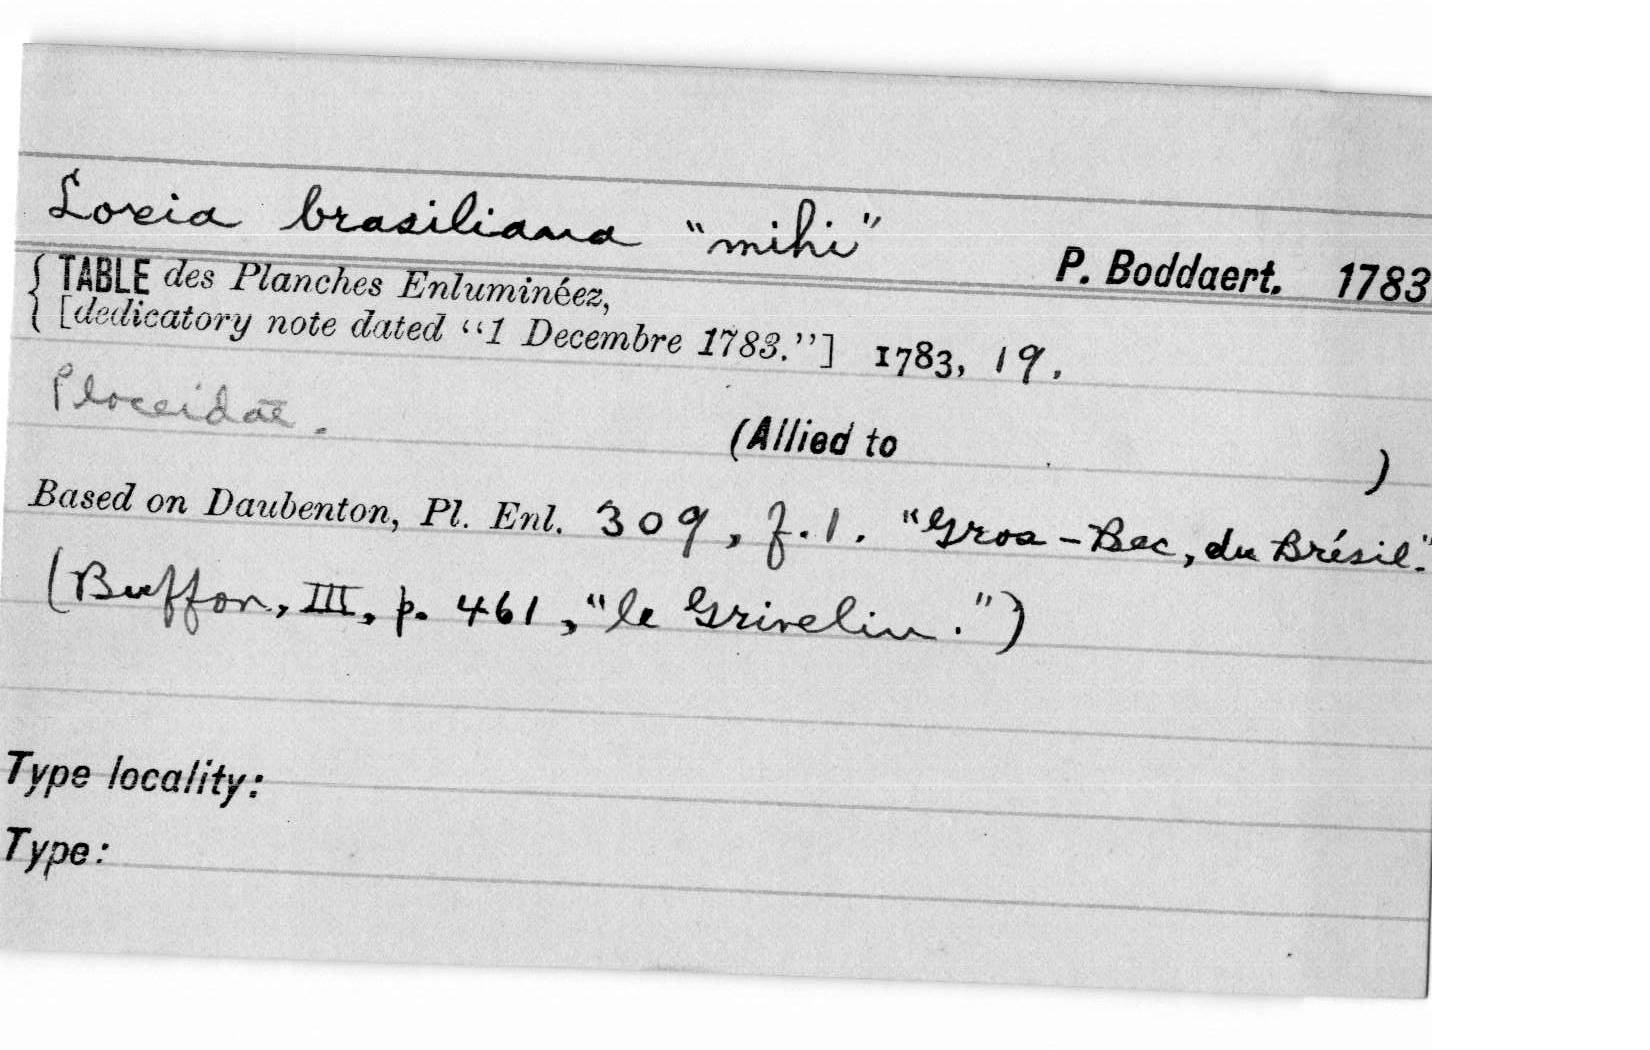 Loxia brasiliana "mihi"
P. Boddaert. 1783
TABLE des Planches Enluminéez,
[dedicatory note dated "1 Decembre 1783."] 1783, 19.
Ploceidae.
(Allied to )
Based on Daubenton, Pl. Enl. 309, f.1. "Gros-Bec, du Brésil."
(Buffon, III, p. 461, "le Grivelin.")
Type locality:
Type: